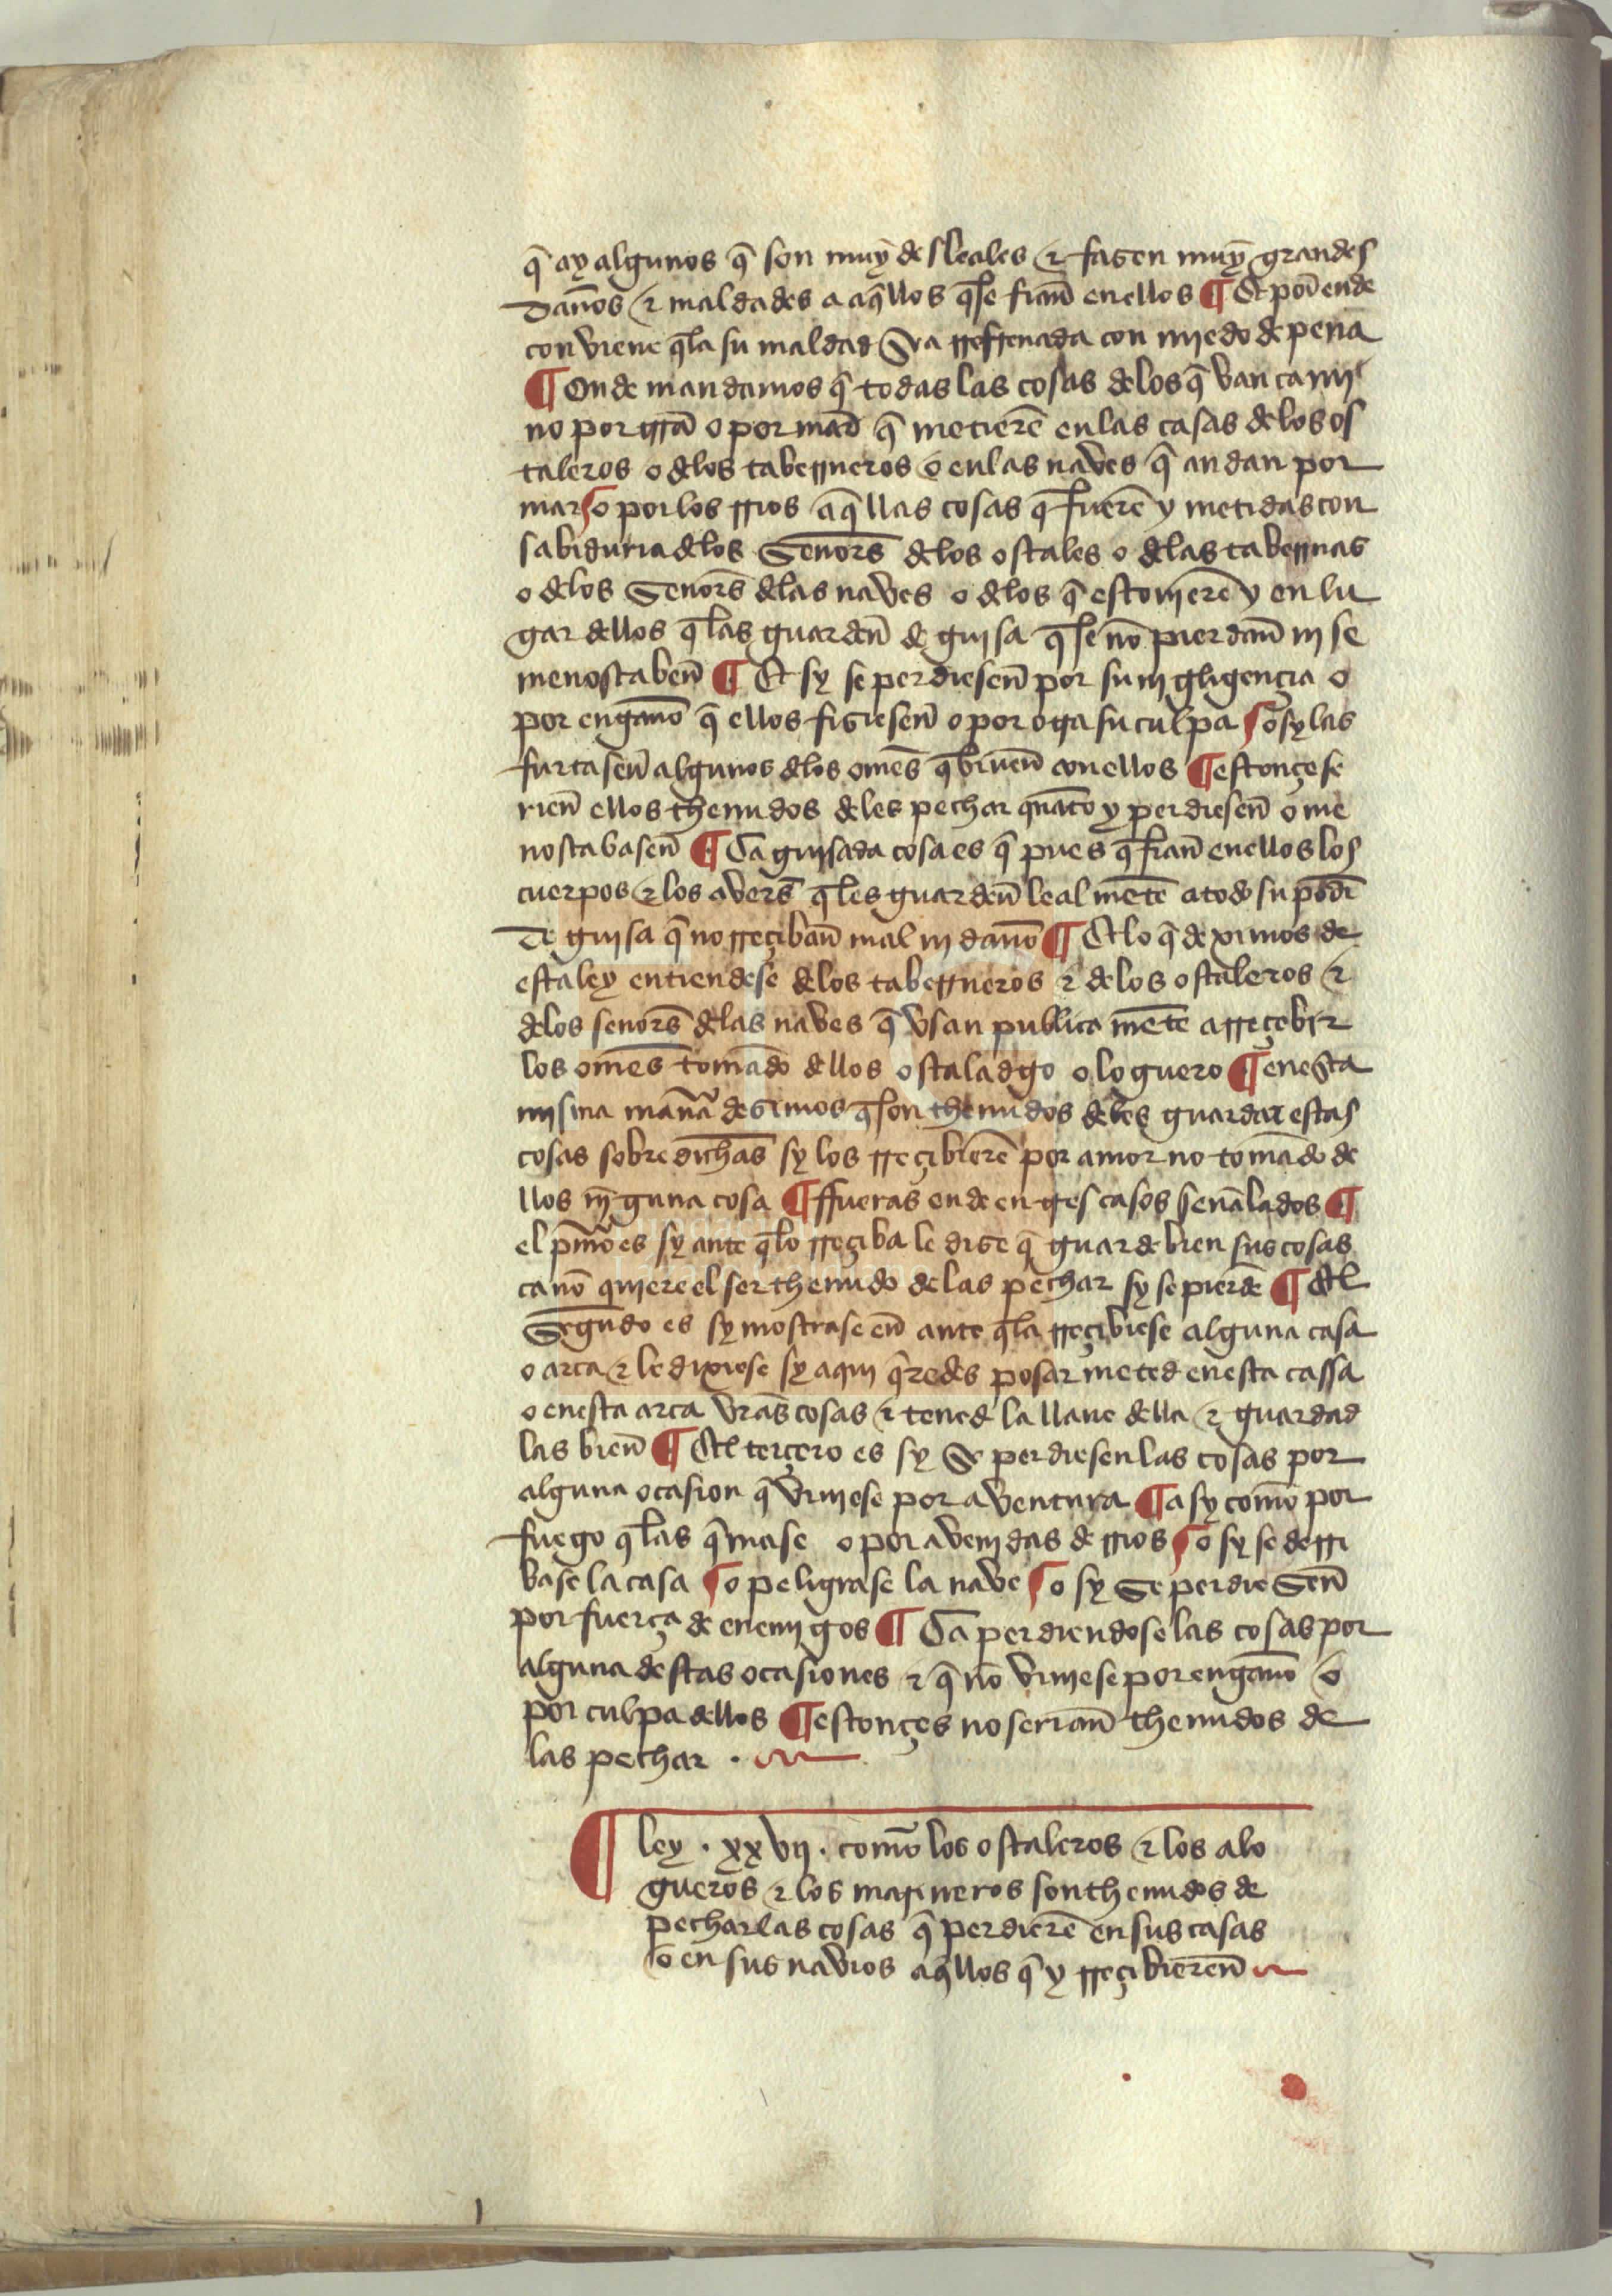 q̄ ay algunos q̄ son muy desleales ⁊ fasen muy grandes
daños ⁊ maldades a aq̄llos q̄ se fiañ enellos ¶ Et por ende
conviene q̄ la su maldad sea rrefrenada con miedo de pena
¶ Onde mandamos q̄ todas las cosas delos q̄ van cami
no por trr̄a o por mar o q̄ metierē enlas casas delos os
taleros o delos taberneros o enlas naves q̄ andan por
mar o por los rrios aq̄llas cosas q̄ fuerē y metidas con
sabiduria delos Señors̄ delos ostales o delas tabernas
o delos Señors̄ delas naves o delos q̄ estouierē y en lu
gar dellos q̄ las guardeñ de guisa q̄ se nō pierdañ ni se
menoscabeñ ¶ Et sy se perdieseñ por su nigligençia o
por engaño q̄ ellos fisieseñ o por otra su culpa o sy las
furtaseñ algunos delos omēs q̄ biueñ con ellos ¶ estonçe se
rieñ ellos thenudos deles pechar quāto y perdieseñ o me
noscabaseñ ¶ Ca guisada cosa es q̄ pues q̄ fiañ enellos los
cuerpos ⁊ los avers̄ q̄ les guardeñ leal mēte a todo su podr̄
De guisa q̄ no rreçibañ mal ni daño ¶ Et lo q̄ deximos de
esta ley entiendese delos taberneros ⁊ delos ostaleros ⁊
delos señors̄ delas naves q̄ vsan publica mēte a rreçebir
los omēs tomādo dellos ostaladgo o loguero ¶ enesta
misma man̄a desimos q̄ son thenudos deles guardar estas
cosas sobre dichas sy los rreçibierē por amor no tomādo de
llos nīguna cosa ¶ ffueras ende en tres casos señalados ¶
el pm̄o es sy ante q̄ lo rreçiba le dise q̄ guarde bien sus cosas
ca nō quiere el ser thenudo de las pechar sy se pierdē ¶ El
Segūdo es sy mostrase eñ ante q̄ la rreçibiese alguna casa
o arca ⁊ le dixiese sy aqui q̄redes posar meted enesta cassa
o enesta arca vr̄as cosas ⁊ tened la llaue della ⁊ guardad
las bieñ ¶ El terçero es sy Se perdiesen las cosas por
alguna ocasion q̄ viniese por aventura ¶ asy como por
fuego q̄ las q̄mase o por avenidas de rrios o sy se derri
base la casa o peligrase la nave o sy Se perdieSeñ
por fuerça de enemigos ¶ Ca perdiendose las cosas por
alguna destas ocasiones ⁊ q̄ nō viniese por engaño o
por culpa dellos ¶ estonçes no seriañ thenudos de
las pechar .
¶ ley . xxvij . como los ostaleros ⁊ los alo
gueros ⁊ los marineros son thenudos de
pechar las cosas q̄ perdierē en sus casas
o en sus navios aq̄llos q̄ y rreçibiereñ